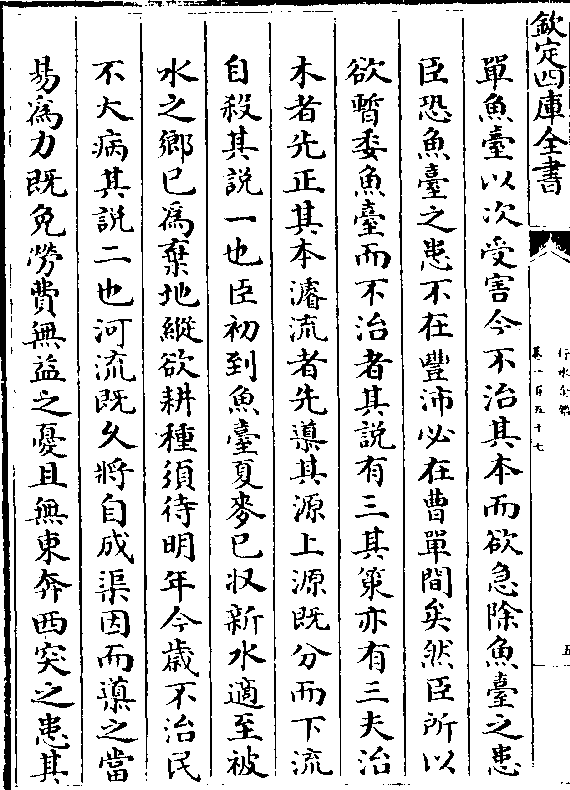 欽定四庫全書
行水金鑑
卷一百五十七
五
單魚臺以次受害今不治其本而欲急除魚臺之患
臣恐魚臺之患不在豐沛必在曹單間矣然臣所以
欲暫委魚臺而不治者其說有三其策亦有三夫治
木者先正其本濬流者先導其源上源既分而下流
自殺其説一也臣初到魚臺夏麥已收新水適至被
水之鄉已爲棄地縱欲耕種須待明年今歲不治民
不大病其説二也河流既久將自成渠因而導之當
易爲力既免勞費無益之憂且無東奔西突之患其